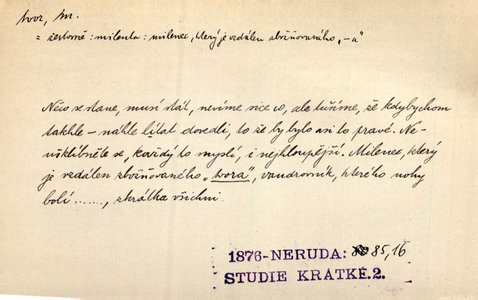 tvor, m.
= žertovně: milenka: milenec, který je vzdálen zbožňovaného „-a“
Něco se stane, musí stát, nevíme sice co, ale tušíme, že kdybychom
takhle – náhle lítat dovedli, to že by bylo asi to pravé. Ne-
ušklíbněte se, každý to myslí, i nejhloupější. Milenec, který
je vzdálen zbožňovaného „tvora“, vandrovník, kterého nohy
bolí ......., zkrátka všichni.
1876-NERUDA: 85,16
STUDIE KRÁTKÉ.2.